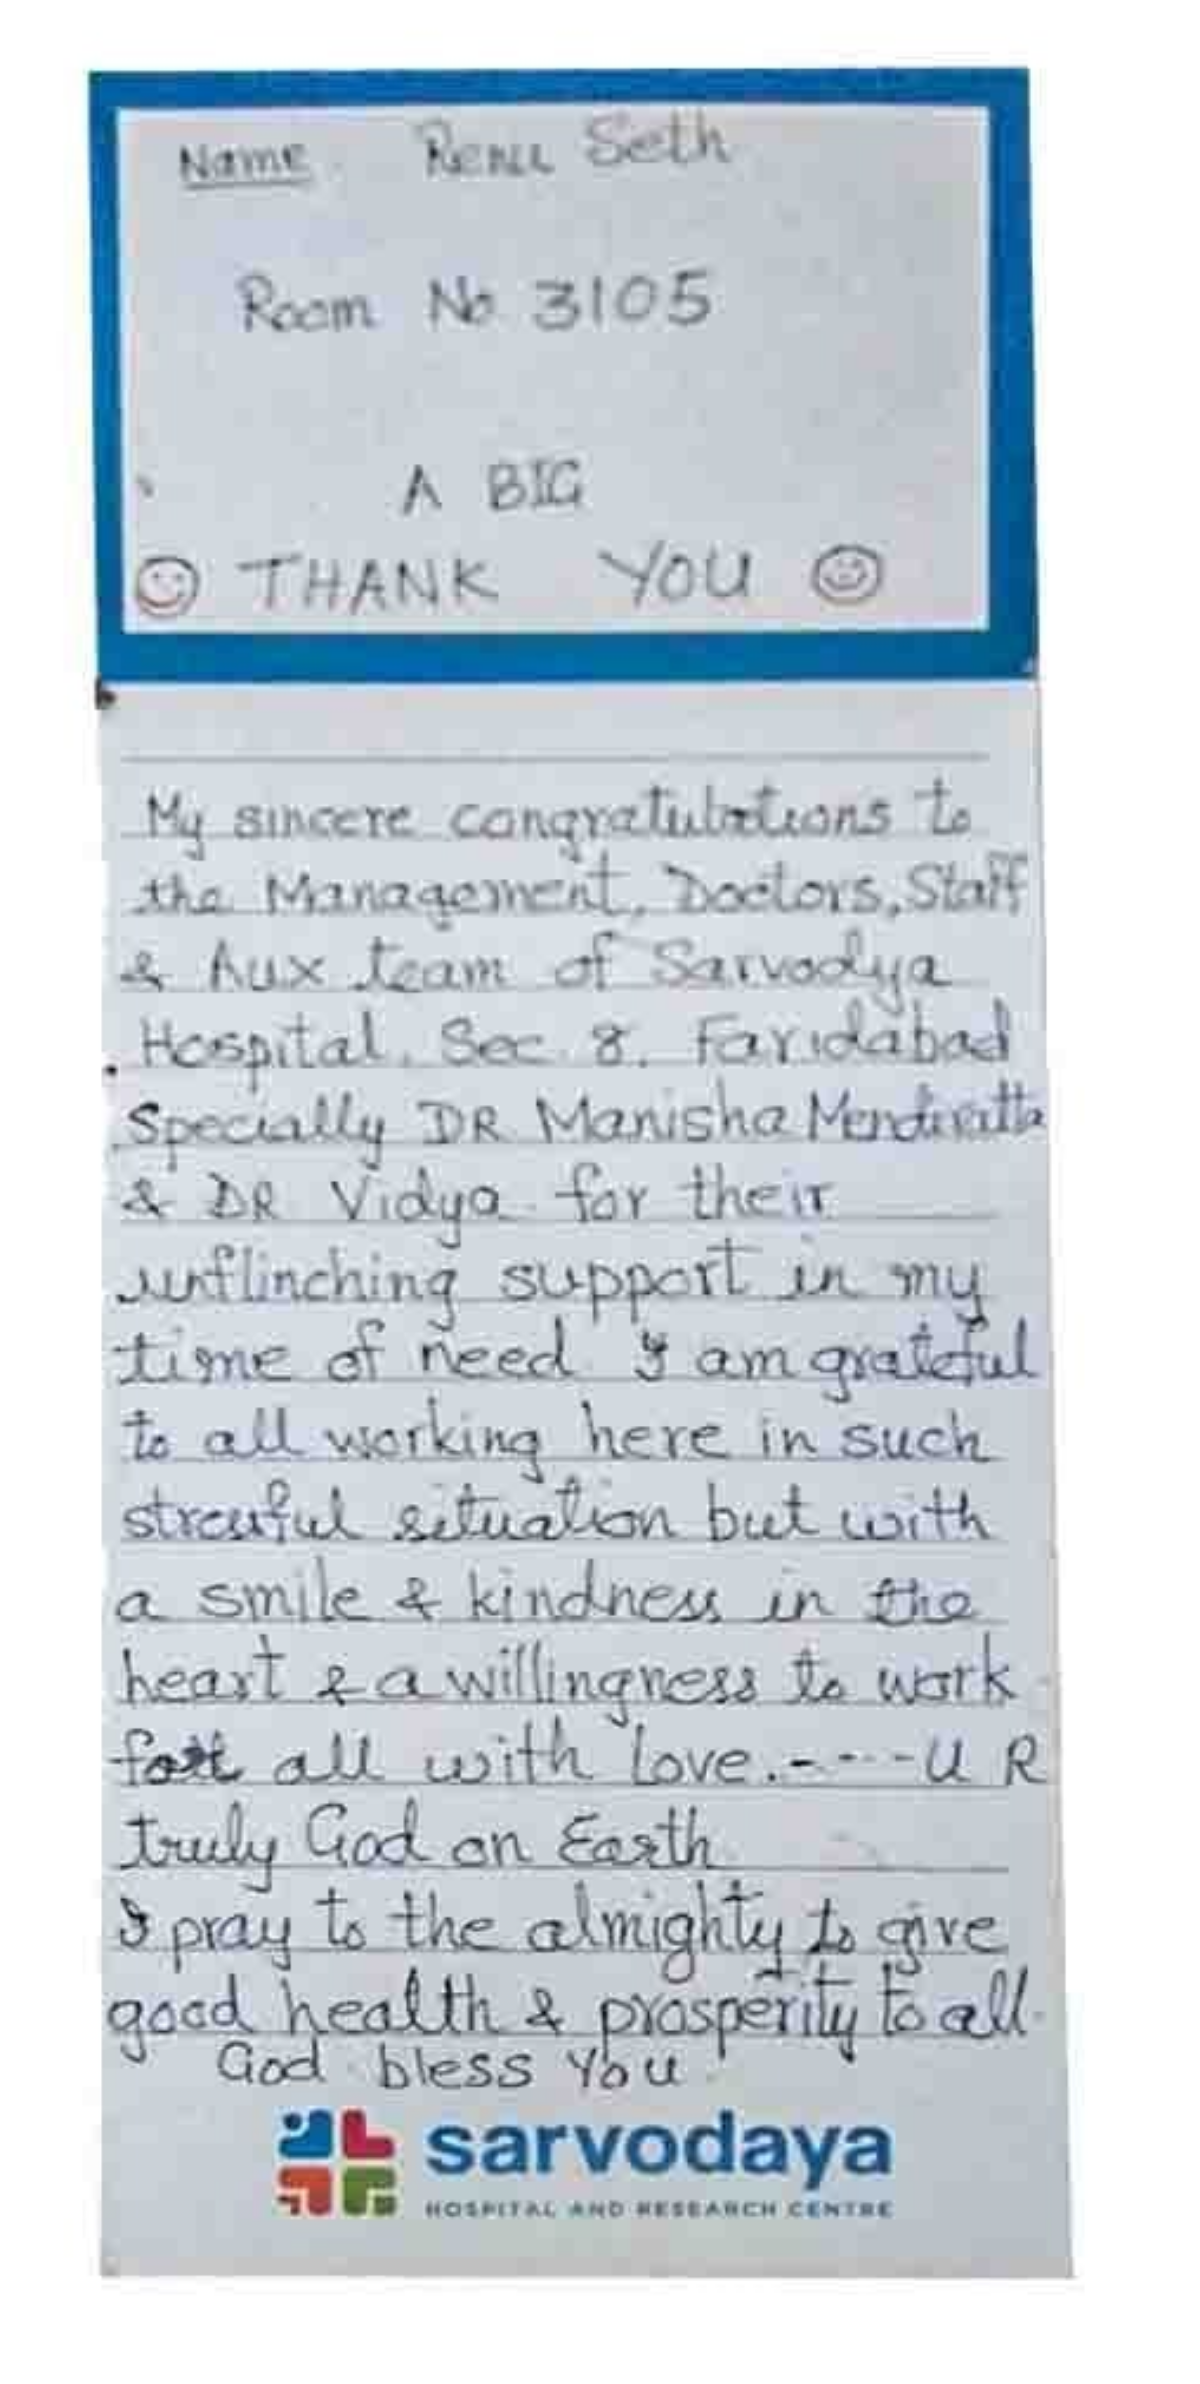 Name Renu Seth
Room No 3105
A BIG
THANK YOU
My sincere congratulations to
the Management, Doctors, Staff
& Aux team of Sarvodya
Hospital, Sec 8, Faridabad
Specially DR Manisha Mendiratta
& DR Vidya for their
unflinching support in my
time of need I am grateful
to all working here in such
stressful situation but with
a smile & kindness in the
heart & a willingness to work
for all with Love.----U R
truly God on Earth
I pray to the almighty to give
good health & prosperity to all.
God bless You
sarvodaya
HOSPITAL AND RESEARCH CENTRE